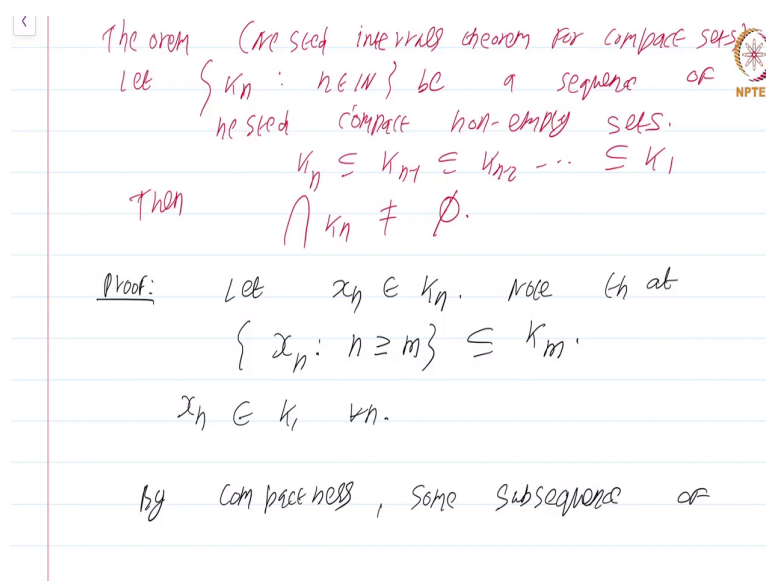 Theorem (Nested intervals theorem for compact sets)
Let { Kn : n ∈ IN } be a sequence of
NPTE
nested compact non-empty sets.
Kn ⊆ Kn-1 ⊆ Kn-2 --·· ⊆ K1
Then ⋂ Kn ≠ ∅.
Proof: Let xn ∈ Kn. Note that
{ xn : n ≥ m } ⊆ Km.
xn ∈ K1 ∀n.
By compactness, some subsequence of